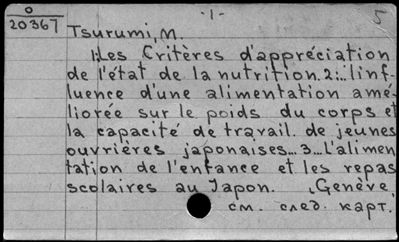 0
20367
-1-
5
Tsurumi, M.
1. Les Critères d'appréciation
de l'état de la nutrition. 2... l'inf-
luence d'une alimentation amé-
liorée sur le poids du corps et
la capacité de travail de jeunes
ouvrières japonaises... 3... L'alimen
tation de l'enfance et les repas
scolaires au Japon. , Genève,
см. след. карт.